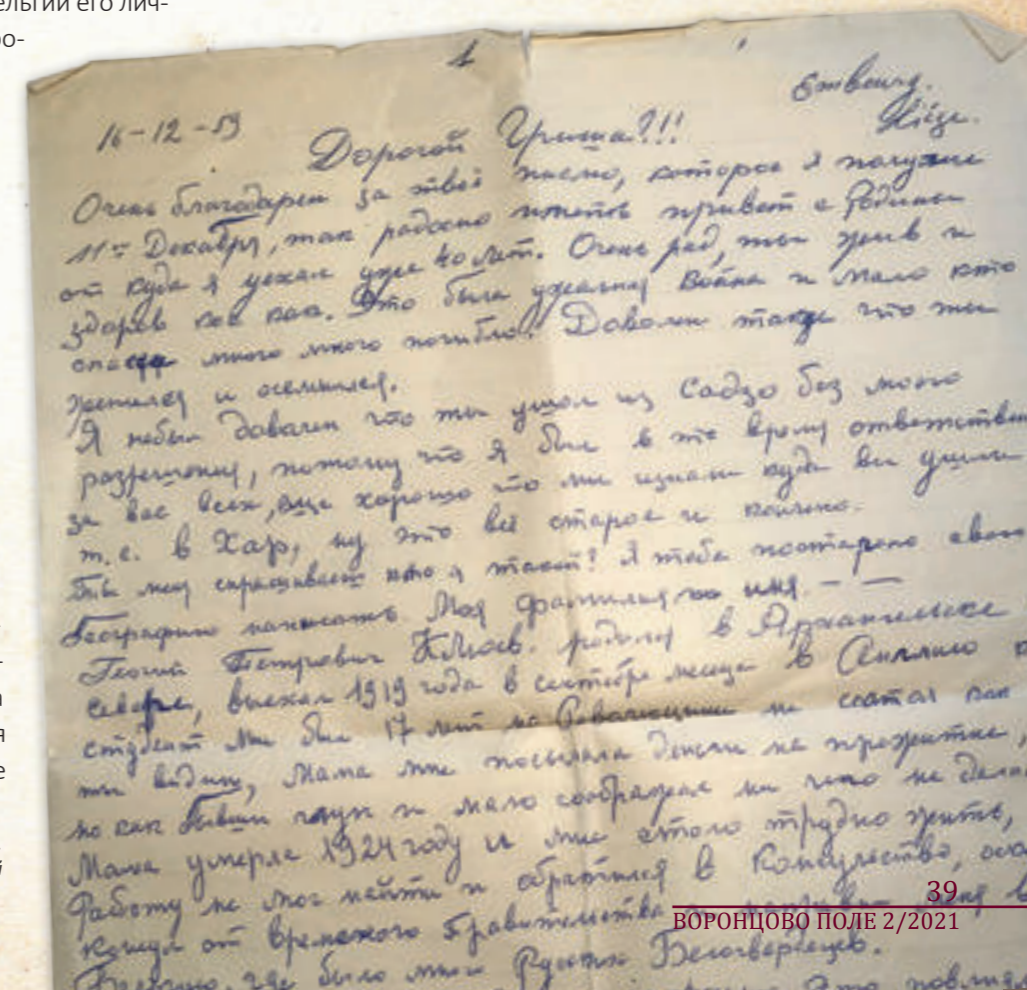 ельгии его лич-
ро-
1
16-12-59
Liège.
Дорогой Гриша?!!
Очень благодарен за твоё письмо, которое я получил
11го Декабря, так радосно иметь привет с Родины
от куда я уехал уже 40 лет. Очень рад, ты жив и
здоров кое как. Это была ужасная Война и мало кто
много много погибло. Доволен также что ты
женился и осемился.
Я небыл доволен что ты ушол из Садзо без моего
разрешения, потому что я был в то время ответствен
за вас всех, еще хорошо что мы узнали куда вы ушли
т.е. в Хар, ну это всё старое и кончено.
Ты меня спрашиваеш кто я такой? Я тебе постараю свою
Географию написать Моя фамилия имя — —
Георгий Петрович Клюев. родился в Архангельске
севере, выехал 1919 года в сентябре месяца в Англию
студент мне был 17 лет но Революция не
ты видиш, Мама мне посылала деньги на прожитие,
но как Бывши глуп и мало соображал ни чего не делал
Мама умерла 1924 году и мне стало трудно жить,
Работу не мог найти и обратился в Консулество,
Консул от временого Правительства меня в
где было много Руских Белогвардейцев.
Это повлиял
я
е
й
39
ВОРОНЦОВО ПОЛЕ 2/2021